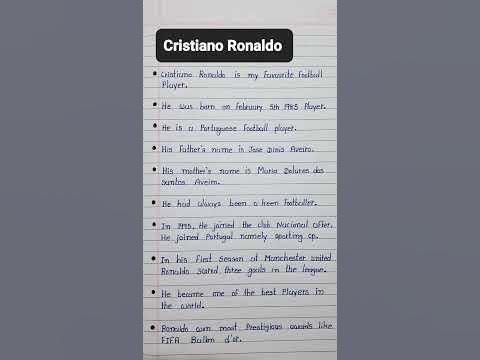 Cristiano Ronaldo
Cristiano Ronaldo is my favourite football
Player.
He was born on February 5th 1985 Player.
He is a Portuguese football player.
His Father's name is Jose Dinis Aveiro.
His mother's name is Maria Dolores dos
Santos Aveiro.
He had always been a keen footballer.
In 1995, He joined the club Nacional After,
He joined Portugal namely sporting cp.
In his first season at Manchester united
Ronaldo scored three goals in the league.
He became one of the best Players in
the world.
Ronaldo own most Prestigious awards like
FIFA Ballon d'or.